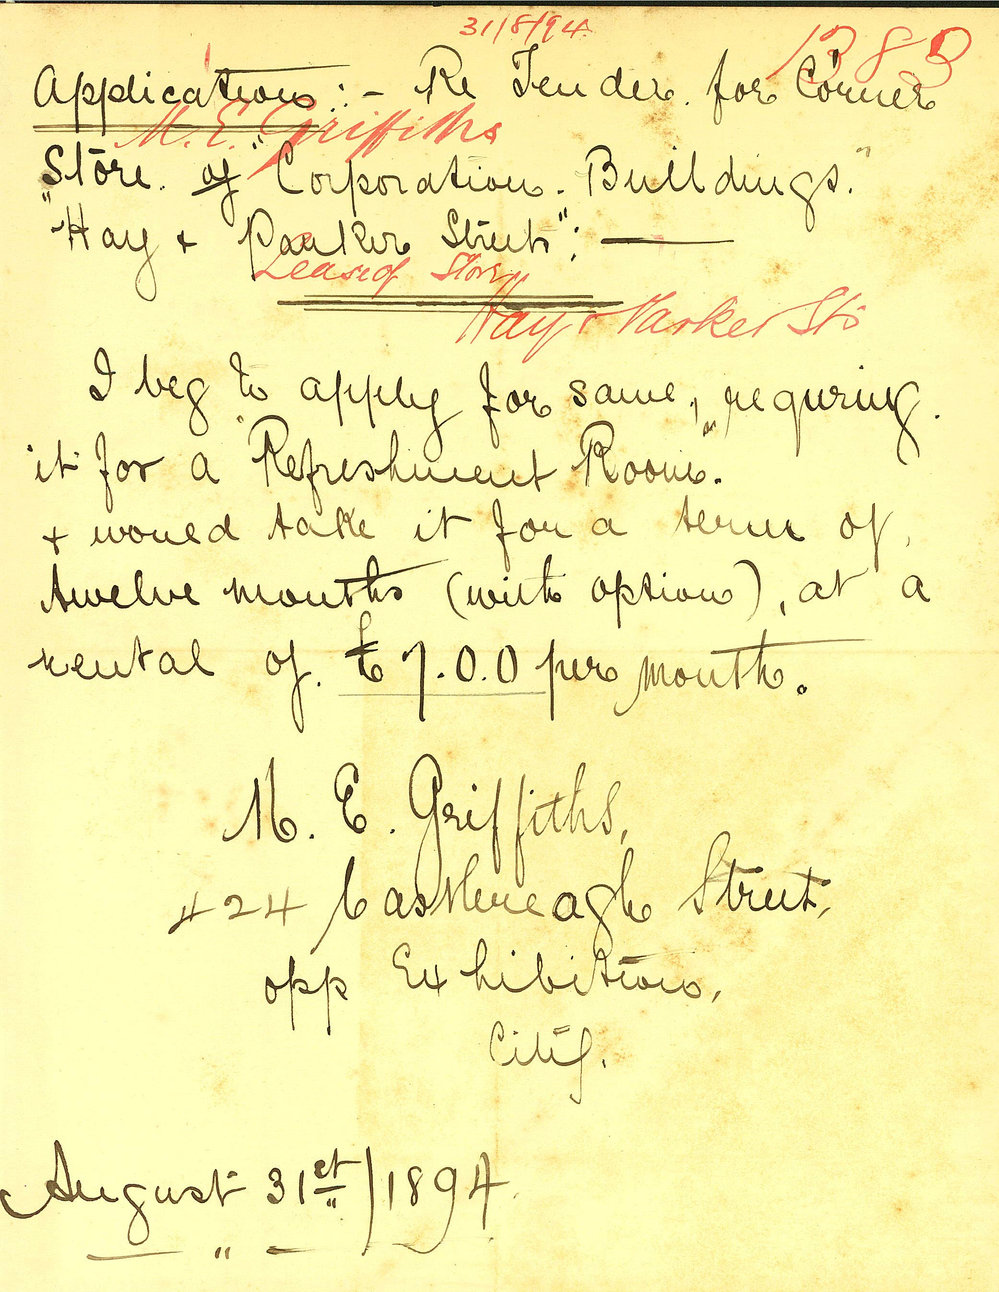 31/8/94.
1383
Application :- Re Tender. for Corner
M. E. Griffiths
Store. of "Corporation. Buildings."
"Hay & Parker Streets":
Lease of Store
Hay & Parker Sts
I beg to apply for same, requring.
it for a "Refreshment Room".
& would take it for a term of,
twelve months (with option), at a
rental of. £7.0.0 per month.
M. E. Griffiths,
424 Castlereagh Street,
opp Exhibition,
City.
August 31st/1894.